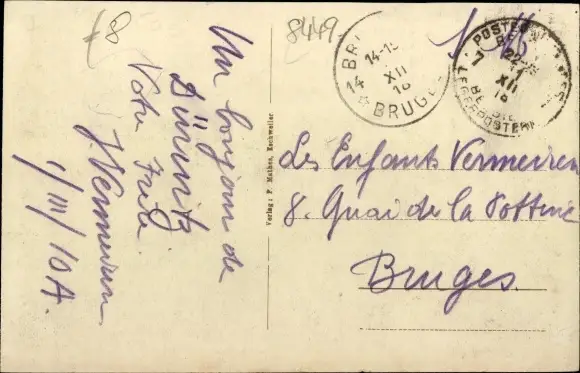 8
8449
Un bonjour de
Düwiss
Votre Frère
J Vermeiren
1/III/10A.
Verlag: P. Mathes, Eschweiler
14-15
XII
18
BRUGES
14
POSTES
22-
XII
18
LEGERPOSTERIJ
Les Enfants Vermeiren
8. Quai de la Potterie
Bruges.